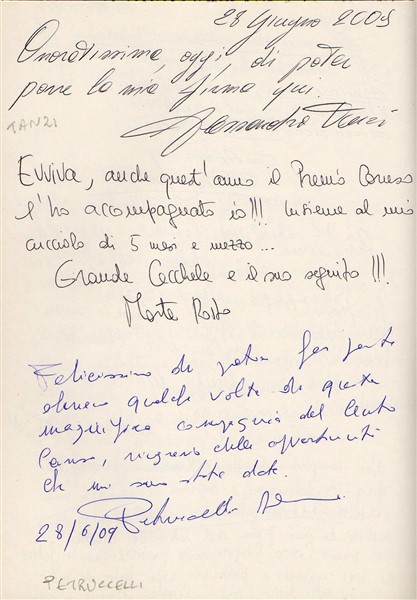 28 Giugno 2009
Onoratissima, oggi, di poter
porre la mia firma qui.
Alessandra Tanzi
TANZI
EVVIVA, anche quest'anno il Premio Caruso
l'ho accompagnato io!!! Insieme al mio
cucciolo di 5 mesi e mezzo...
Grande Cecchele e il suo seguito!!!
Marta
Felicissimo di poter far parte
almeno qualche volta di questa
magnifica compagnia del Centro
Caruso, ringrazio delle opportunità
che mi sono state date.
28/6/09
PETRUCCELLI